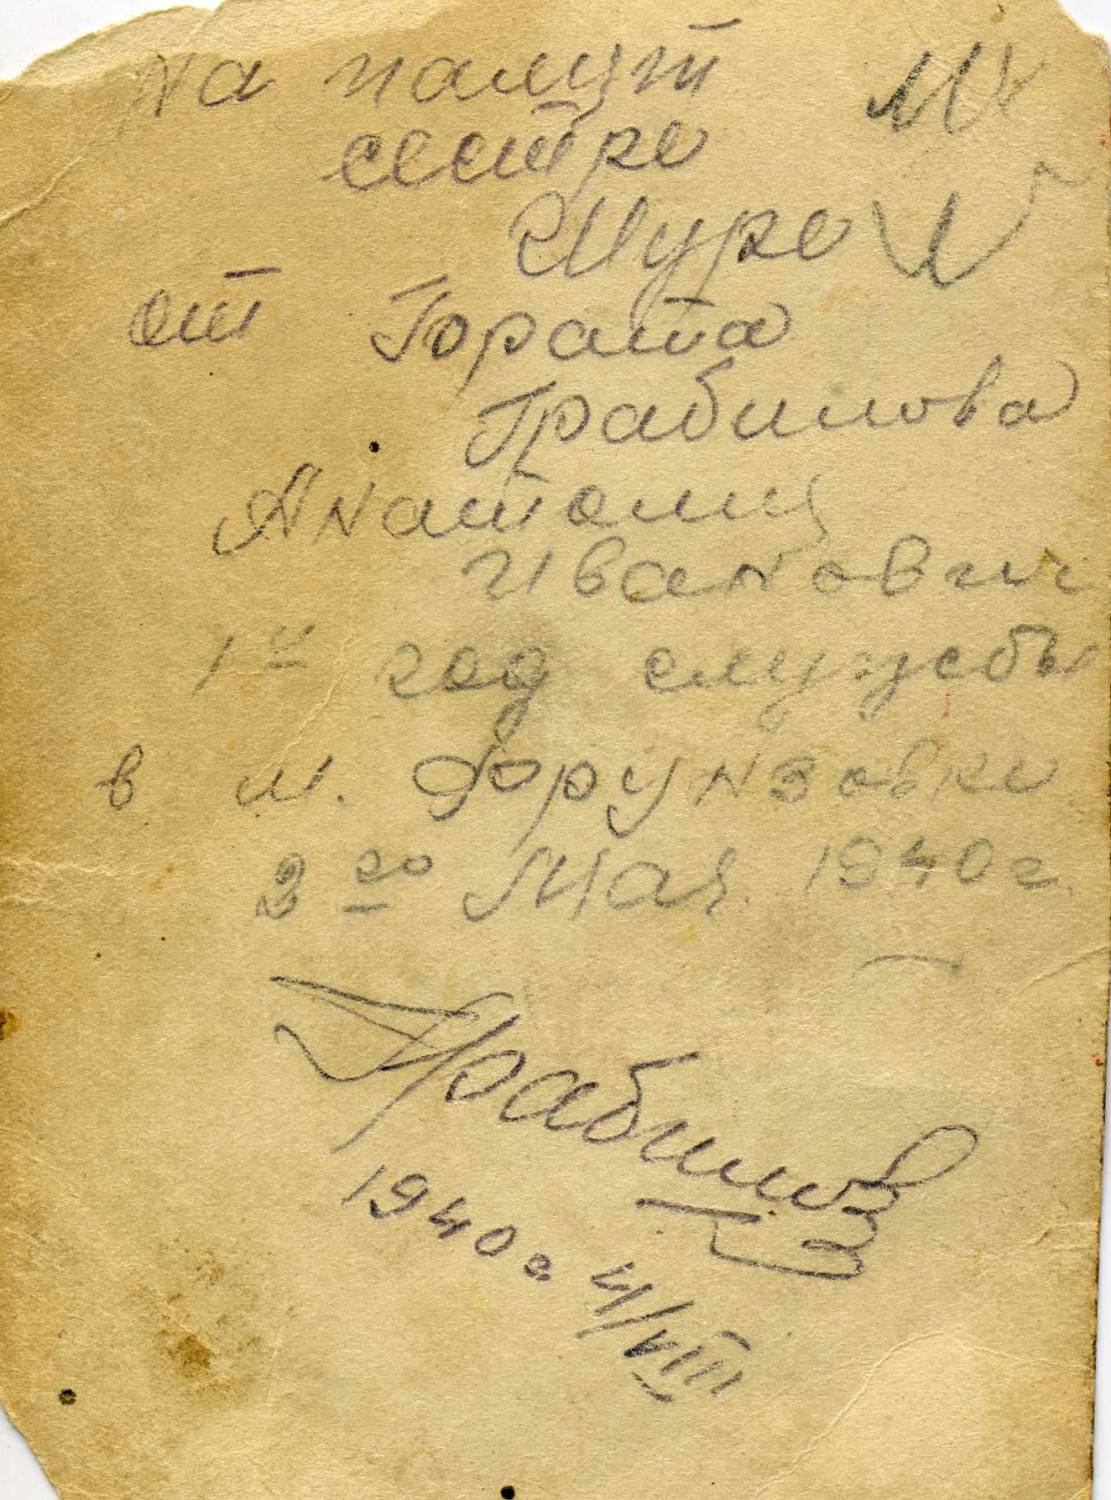 На памят
сестре
Шуре
от Гората
Грабилова
Анатолий
Иванович
1й год службы
в м. Форунзовке
2го Мая. 1940г.
Грабилов
1940г 4/VIII